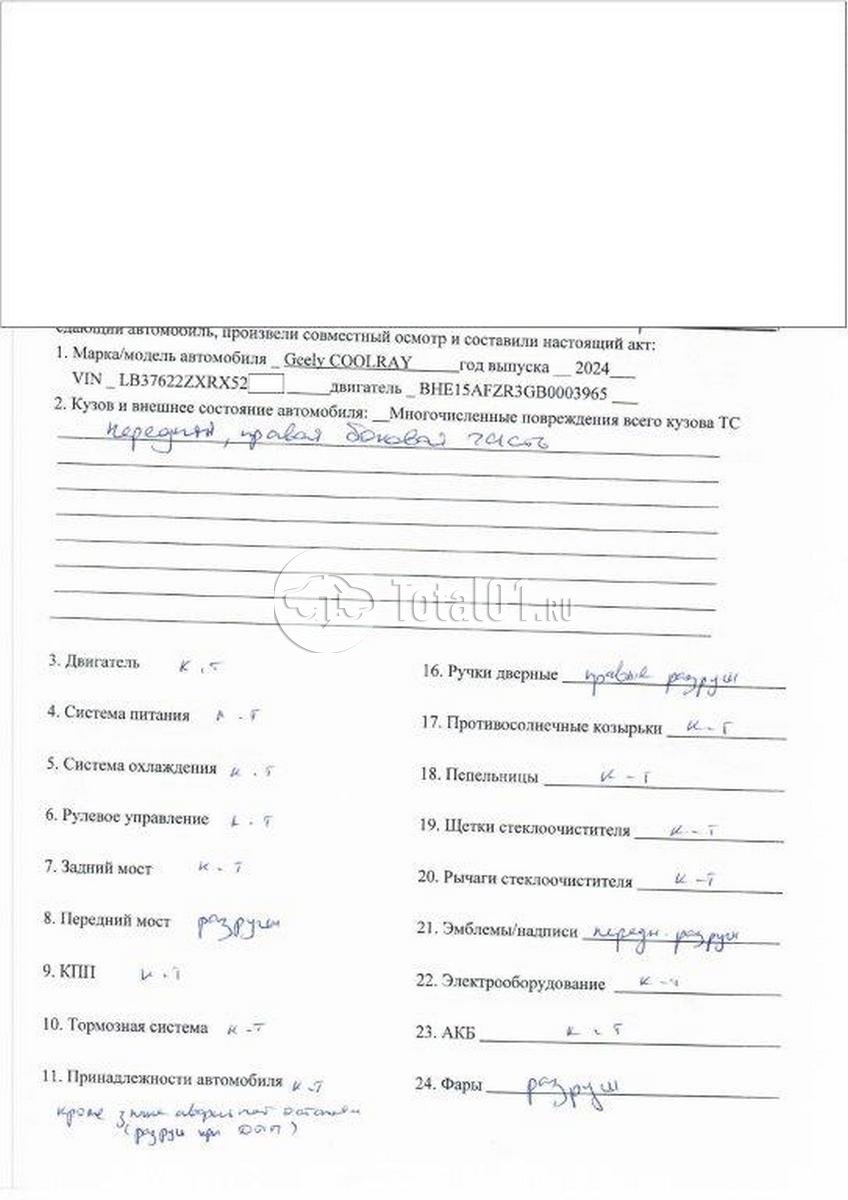 сдающий автомобиль, произвели совместный осмотр и составили настоящий акт:
1. Марка/модель автомобиля _ Geely COOLRAY_____год выпуска __ 2024___
VIN _ LB37622ZXRX52 _____двигатель _ BHE15AFZR3GB0003965 ___
2. Кузов и внешнее состояние автомобиля: __Многочисленные повреждения всего кузова ТС
передняя, правая боковая часть
Total01.RU
3. Двигатель к-т
4. Система питания к-т
5. Система охлаждения к-т
6. Рулевое управление к-т
7. Задний мост к-т
8. Передний мост разруш
9. КПП к-т
10. Тормозная система к-т
11. Принадлежности автомобиля к-т
кроме знака аварийной
(разруш при ДТП)
16. Ручки дверные правые разруш
17. Противосолнечные козырьки к-т
18. Пепельницы к-т
19. Щетки стеклоочистителя к-т
20. Рычаги стеклоочистителя к-т
21. Эмблемы/надписи передн. разруш
22. Электрооборудование к-т
23. АКБ к-т
24. Фары разруш